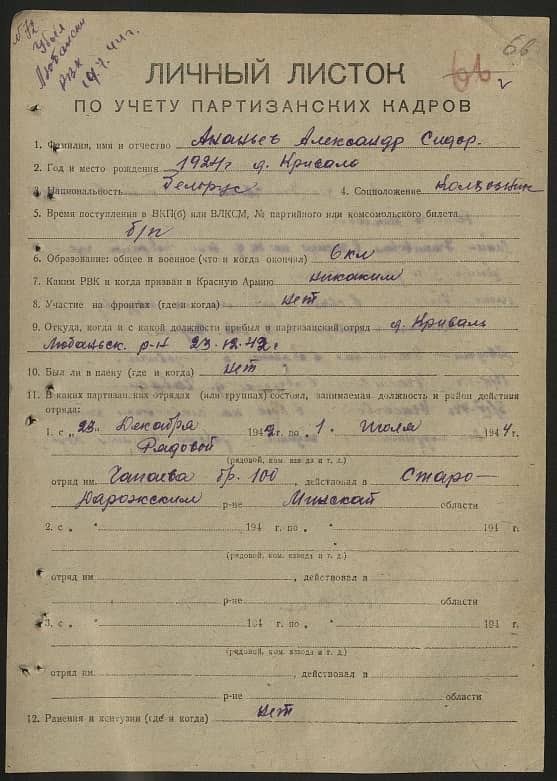 № 72
Убыл
Любански
РВК
19.7.44 г.
66
66
ЛИЧНЫЙ ЛИСТОК
ПО УЧЕТУ ПАРТИЗАНСКИХ КАДРОВ
1. Фамилия, имя и отчество Ананьев Александр Сидор.
2. Год и место рождения 1924 г д. Кривало
3. Национальность белорус 4. Соцположение колхозник
5. Время поступления в ВКП(б) или ВЛКСМ, № партийного или комсомольского билета
б/п
6. Образование: общее и военное (что и когда окончил) 6 кл
7. Каким РВК и когда призван в Красную Армию никаким
8. Участие на фронтах (где и когда) нет
9. Откуда, когда и с какой должности прибыл в партизанский отряд д. Криваль
Любаньск. р-н 23.12.42 г
10. Был ли в плену (где и когда) нет
11. В каких партизанских отрядах (или группах) состоял, занимаемая должность и район действия
отряда:
1. с „23„ Декабря 1942 г. по „1„ Июля 1944 г.
Рядовой
(рядовой, ком. взвода и т. д.)
отряд им. Чапаева бр. 100, действовал в Старо-
Дорожским р-не Минской области
2. с „ “ 194 г. по „ “ 194 г.
(рядовой, ком. взвода и т. д.)
отряд им , действовал в
р-не области
3. с „ “ 194 г. по „ “ 194 г.
(рядовой, ком. взвода и т. д.)
отряд им. , действовал в
р-не области
12. Ранения и контузии (где и когда) нет